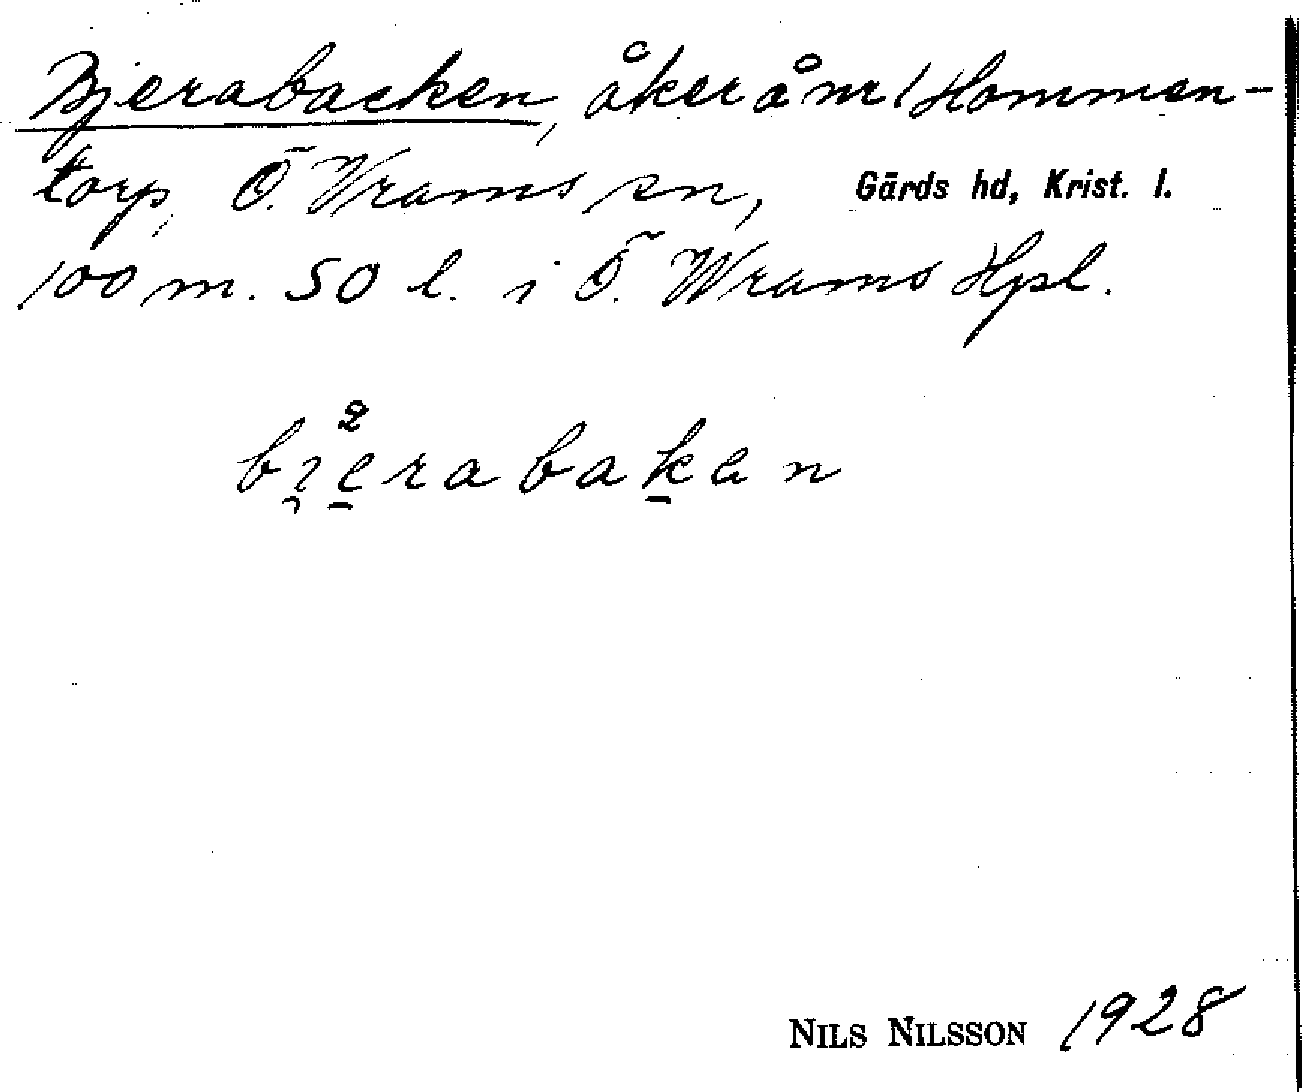 Bjerabacken, åker å nr 1 Hommen-
torp, Ö. Vrams sn, Gärds hd, Krist. l.
100 m. SO l. i Ö. Wrams Hpl.
bierabakan
NILS NILSSON 1928